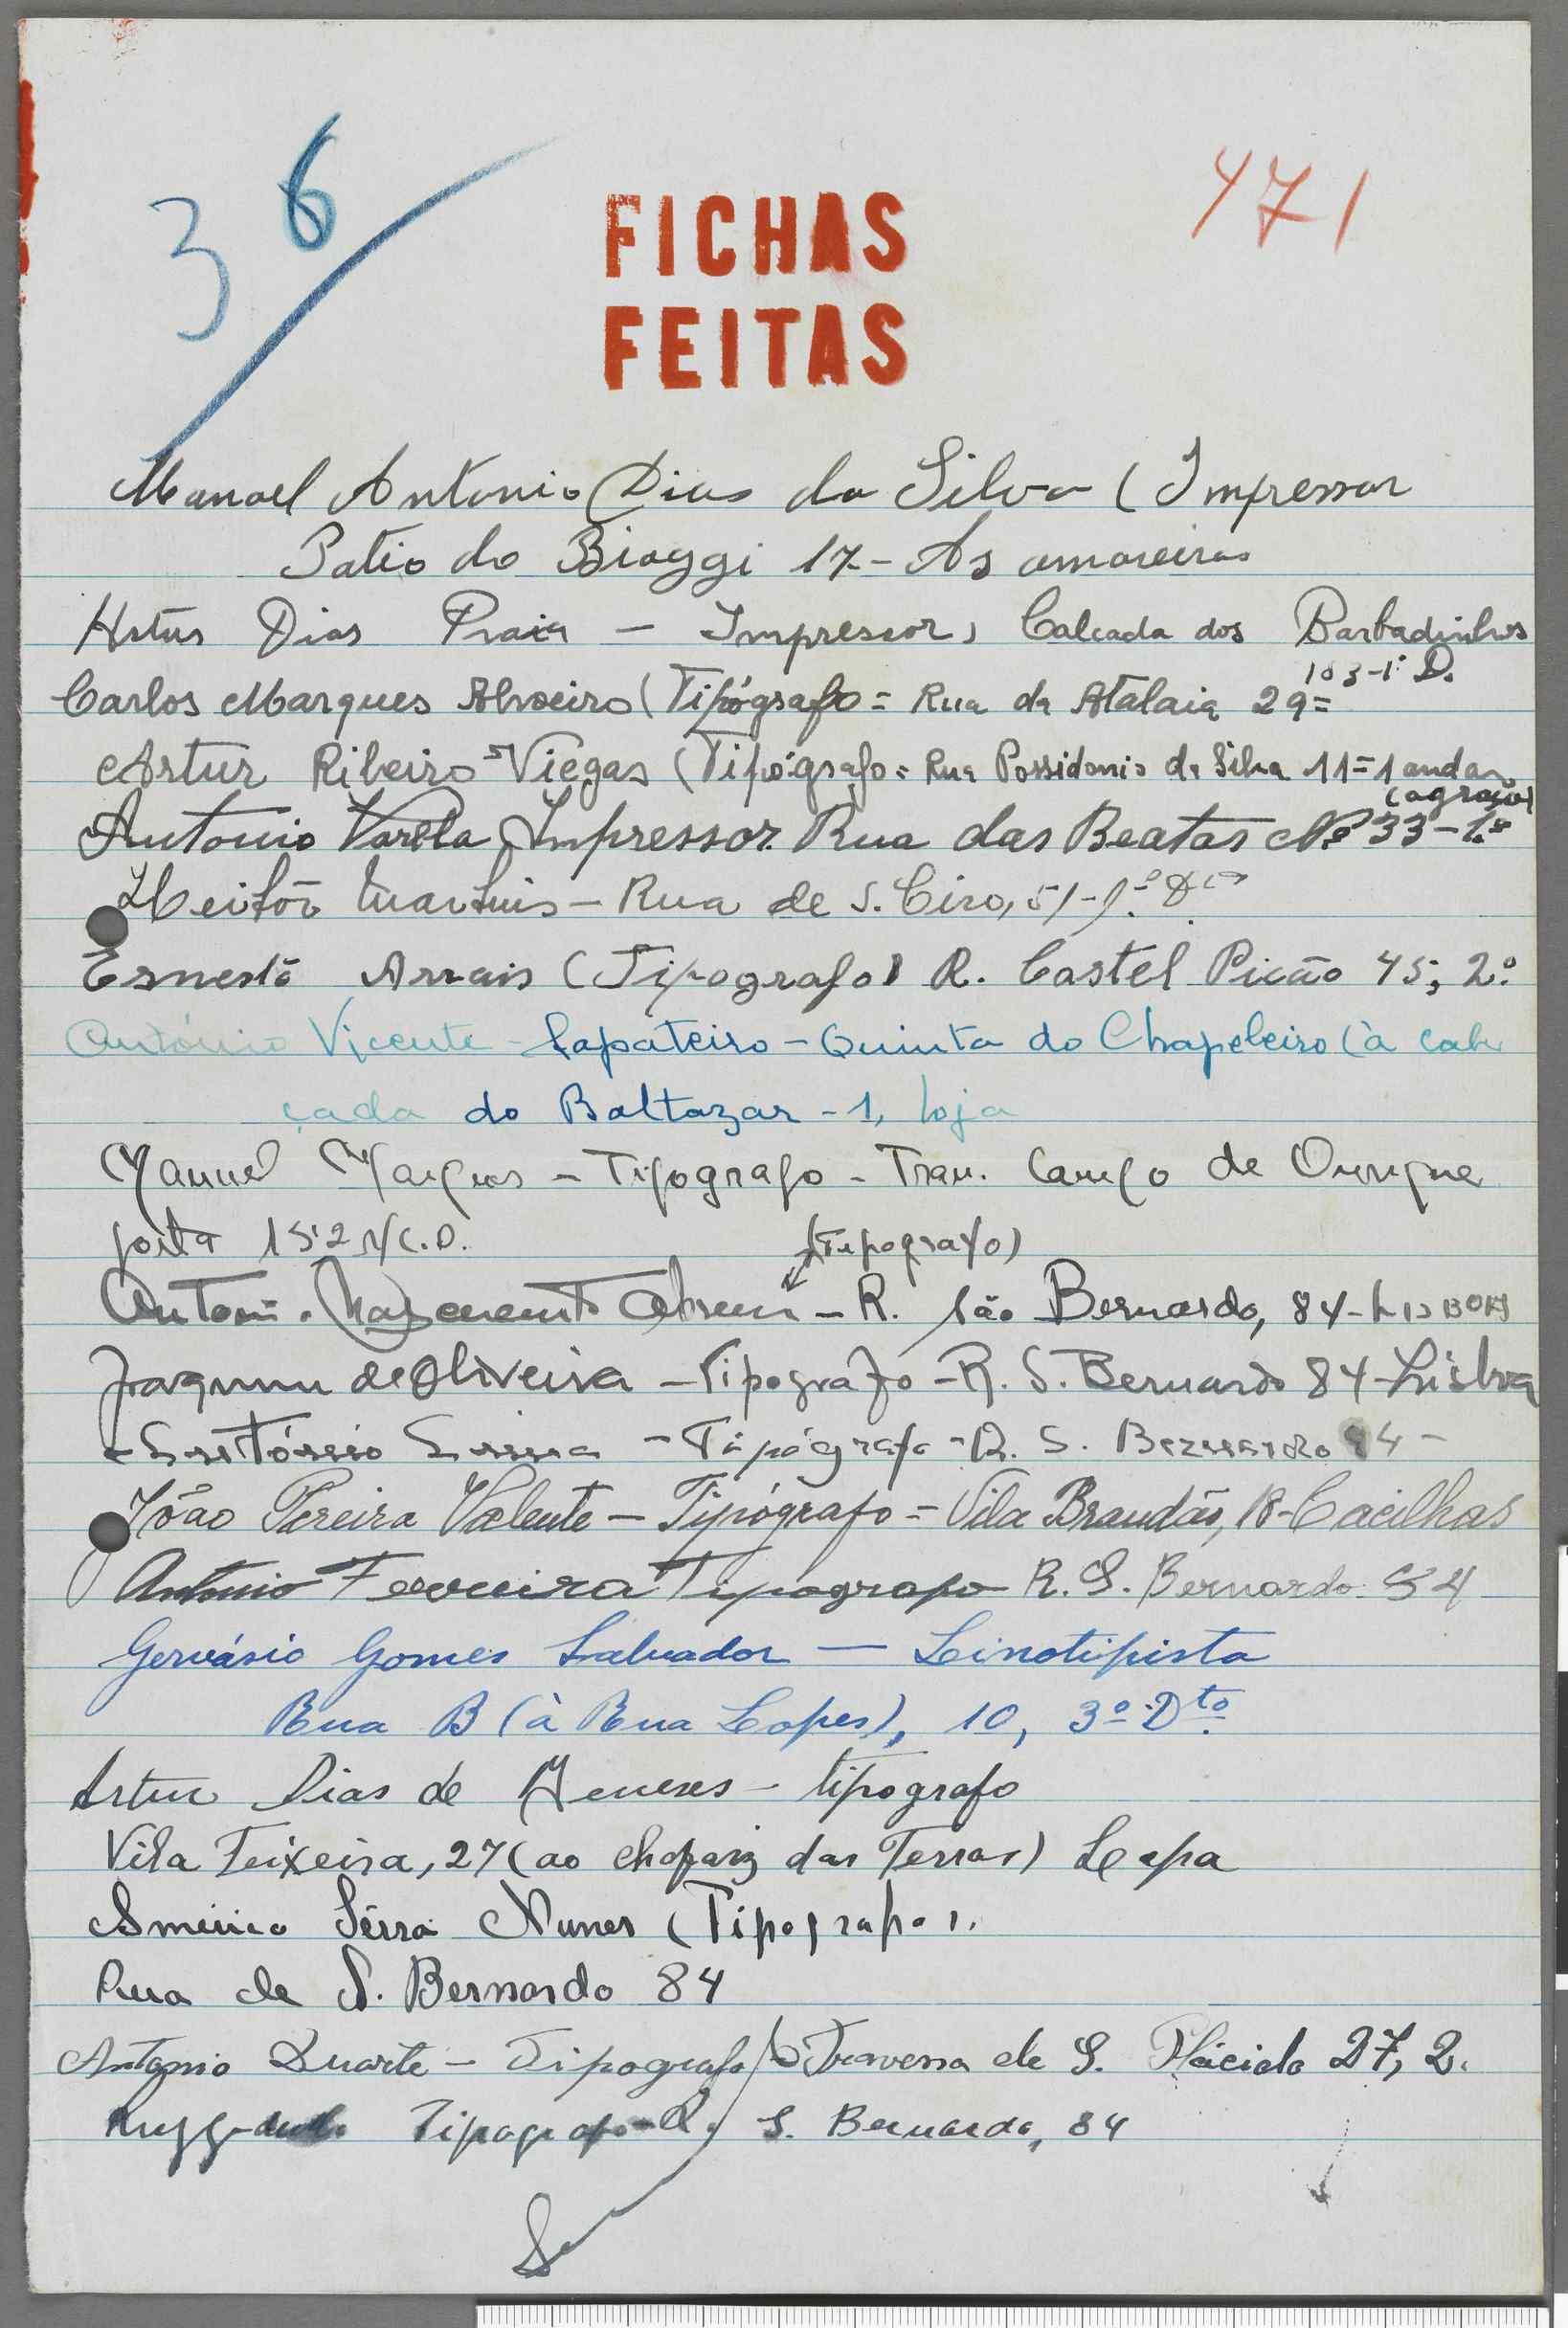 36
471
FICHAS
FEITAS
Manoel Antonio Dias da Silva (Impressor
Patio do Biaggi 17 - As amoreiras
Artur Dias Praia - Impressor, Calcada dos Barbadinhos
103-1º D.
Carlos Marques (Tipógrafo = Rua da Atalaia 29=
Artur Ribeiro Viegas (Tipógrafo = Rua Possidonio da Silva 11=1 andar
Antonio Varela Impressor Rua das Beatas Nº 33-1º
Heitor Martins - Rua de S. Ciro, 51-
Ernesto Arrais (Tipografo) R. Castel Picão 45, 2º
António Vicente - Sapateiro - Quinta do Chapeleiro (à cal
çada do Baltazar - 1, loja
Manuel Marques - Tipografo - Trav. Campo de Ourique
porta 152 r/c. D.
(Tipografo)
Antonio Nascimento Abreu - R. São Bernardo, 84 - LISBOA
Joaquim de Oliveira - Tipografo - R. S. Bernardo 84 - Lisboa
António Lima - Tipógrafo - R. S. Bernardo 84 -
João Pereira Valente - Tipógrafo = Vila Brandão, 18 - Cacilhas
Antonio Ferreira Tipografo R. S. Bernardo 84
Gervásio Gomes Salvador - Linotipista
Rua B (à Rua Lopes), 10, 3º Dto
Artur Dias de Meneses - tipografo
Vila Teixeira, 27 (ao chafariz das Terras) Lapa
Américo Serra Nunes (Tipografo).
Rua de S. Bernardo 84
Antonio Duarte - Tipografo Travessa de S. Plácido 27, 2.
Tipografo - R. S. Bernardo, 84